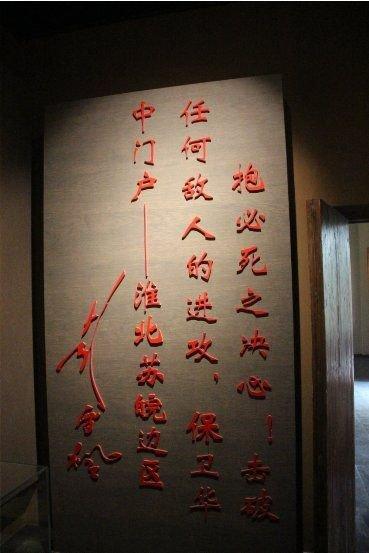 抱必死之决心！击破
任何敌人的进攻，保卫华
中门户——淮北苏皖边区
彭雪枫